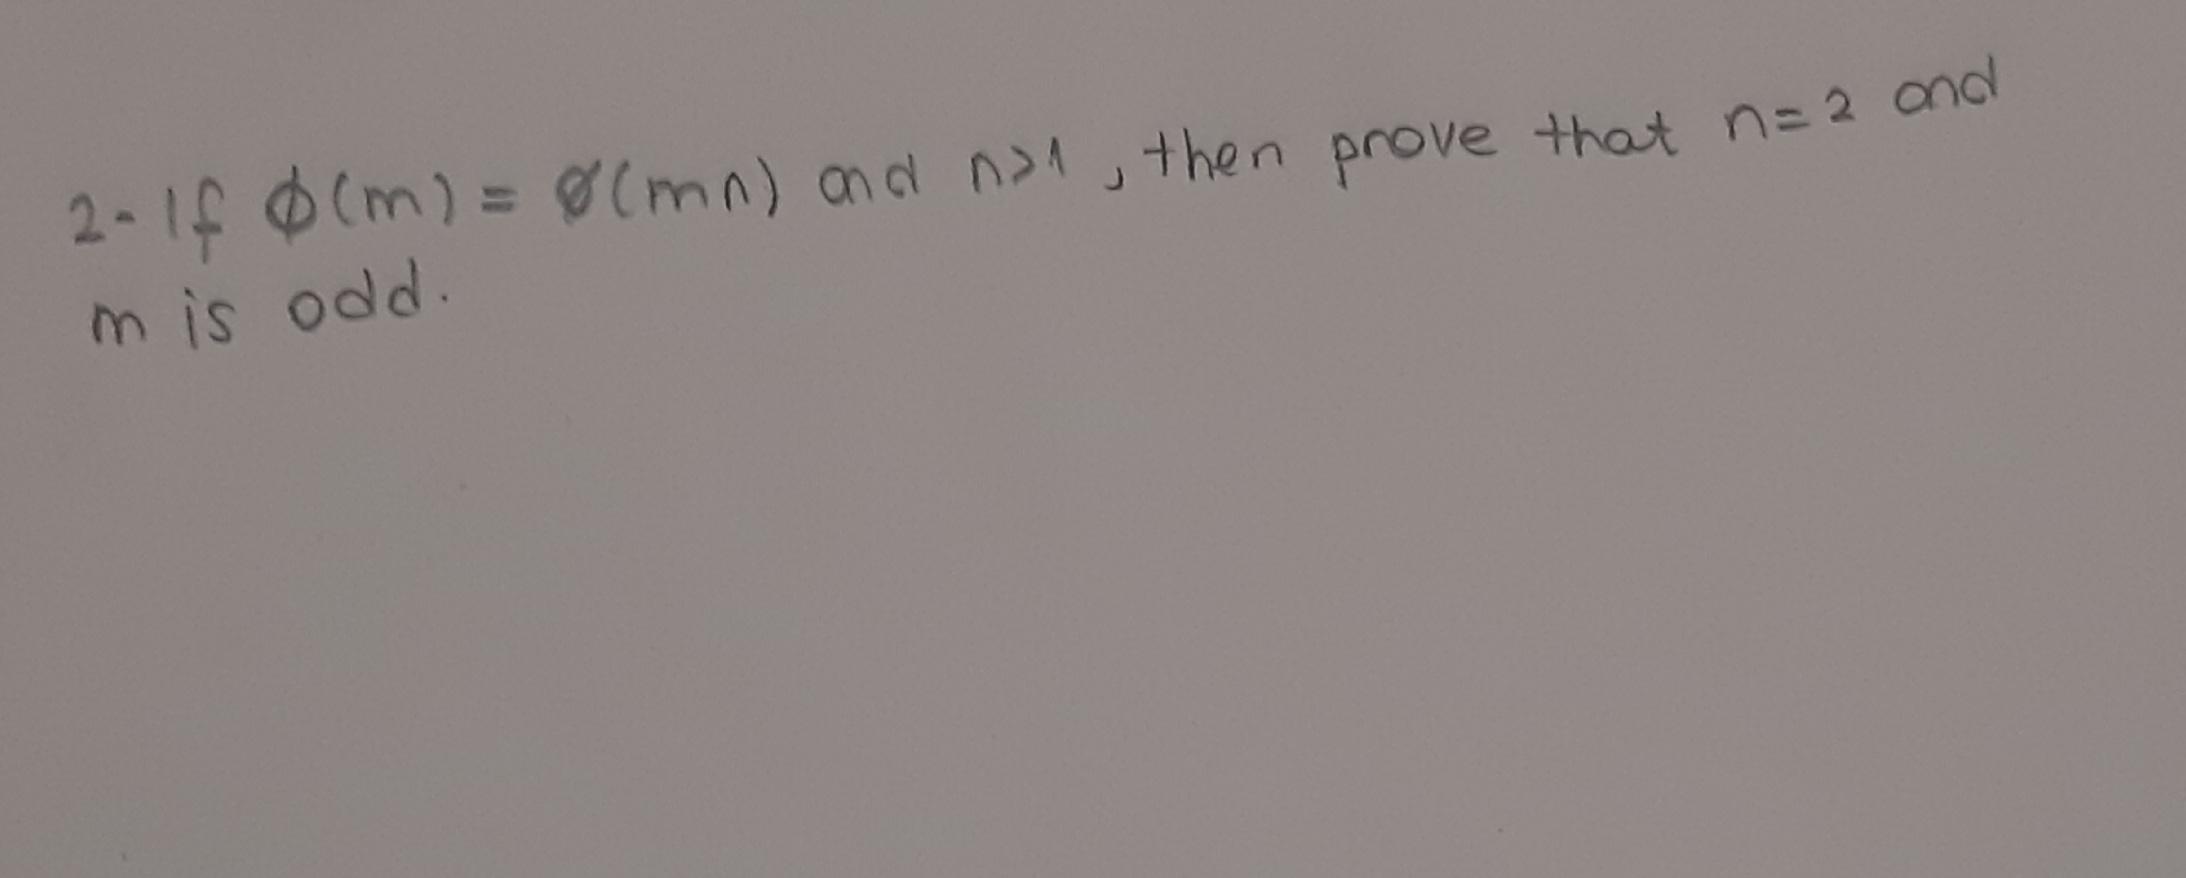 2- If ϕ(m) = ϕ(mn) and n>1, then prove that n=2 and
m is odd.